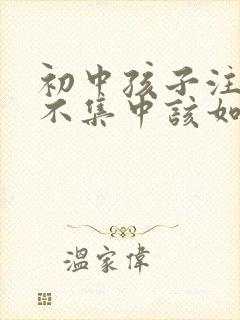 初中孩子注
不集中该如
温家伟